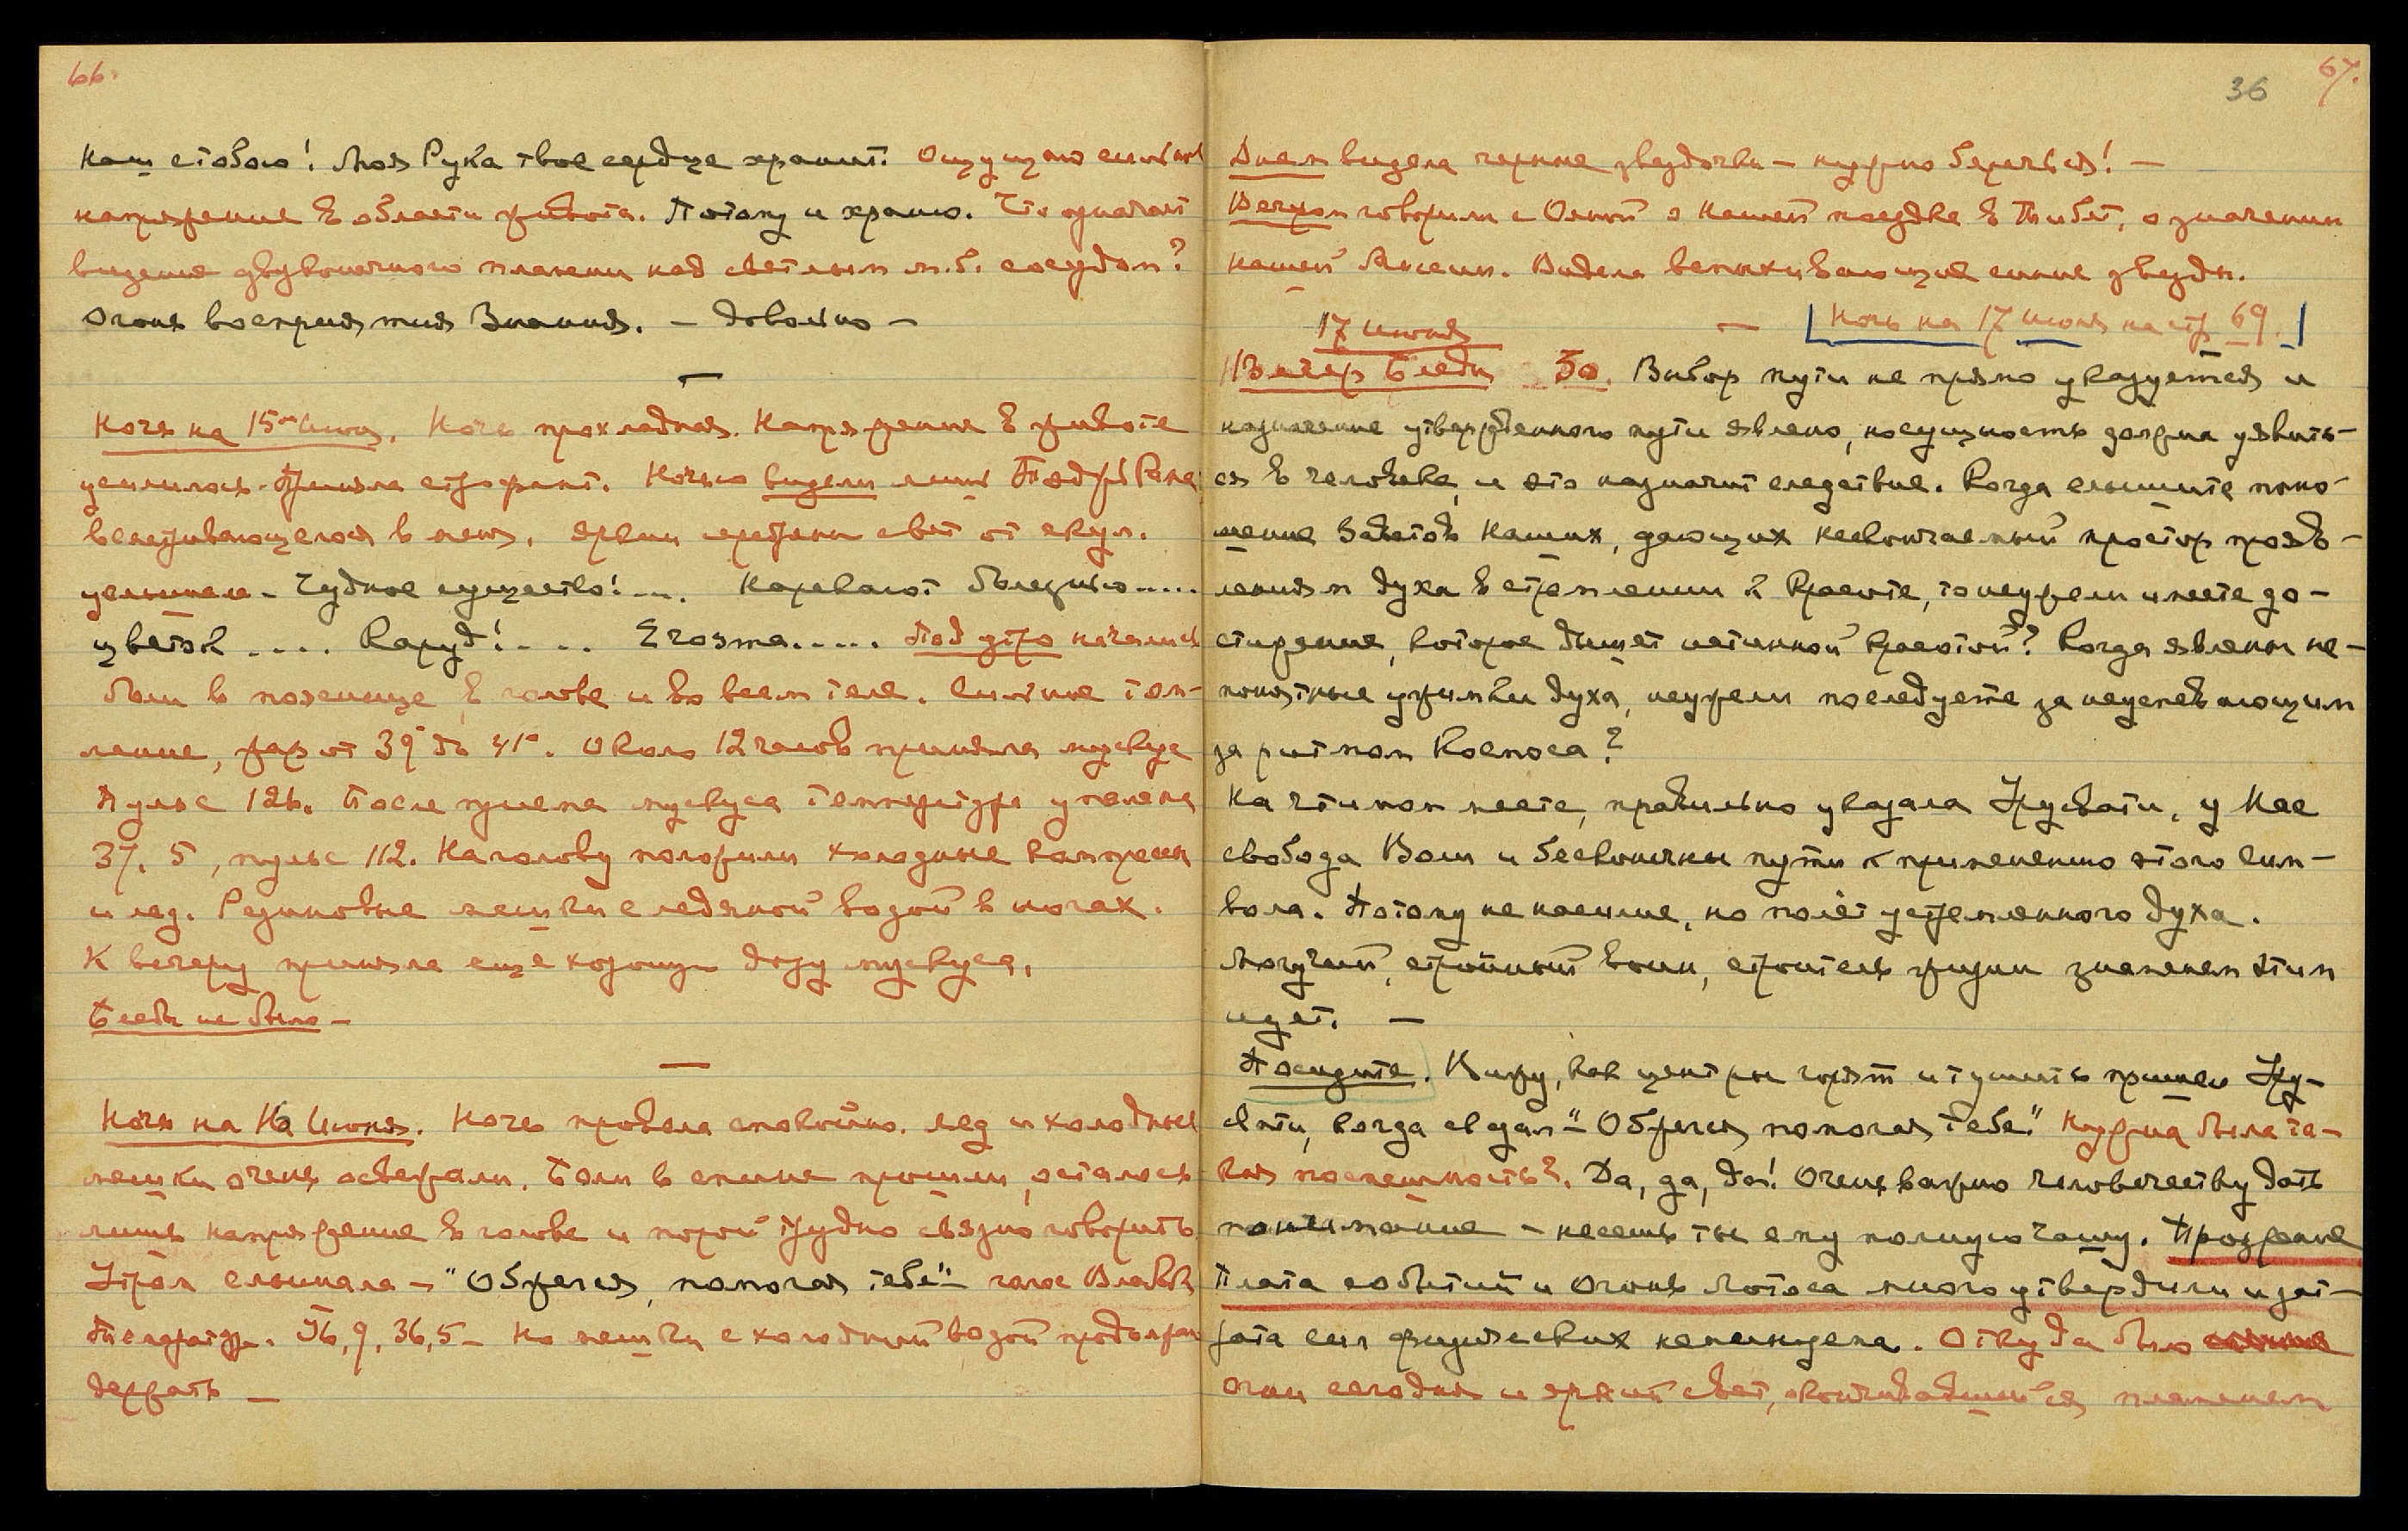 66.
Наш с тобою! Моя Рука твое сердце хранит. Ощущаю сильное
напряжение в области живота. Потому и храню. Что означает
видение двуконечного пламени над светлым м.б. сосудом?
Огонь восприятия Знания. – Довольно –
Ночь на 15ое Июня. Ночь прохладная. Напряжение в животе
усилилось. Приняла строфант. Ночью видели лишь
вслушивающегося в меня. Яркий свет от скул.
услышала – Чудное существо! ... Наревают болезнью.....
цветок .... Каруд! .... Егозта..... Под утро начались
боли в пояснице, в голове и во всем теле. Сильное том-
ление, жар от 39° до 41°. Около 12 часов приняла мускус
Пульс 126. После приема мускуса температура упала на
37,5, пульс 112. На голову положили холодные компрессы
и лед. Резиновые мешки с ледяной водой в ногах.
К вечеру приняла еще хорошую дозу мускуса.
Беседы не было –
Ночь на 16 Июня. Ночь провела спокойно. Лед и холодные
мешки очень освежали. Боли в спине прошли, осталось
лишь напряжение в голове и порой трудно связно говорить
Утром слышала – "Обжегся, помогая тебе" – голос Владыки
Температура. 36,9, 36,5 – Но мешки с холодной водой продолжали
держать –
36
67.
Днем видела черные звездочки – нужно беречься! –
Вечером говорили с Ояной о нашей поездке в Тибет, о значении
нашей Миссии. Видела вспыхивающие синие звезды.
17 июня – [Ночь на 17 Июня на стр 69.]
Вечер Беседы 50. Выбор пути не прямо указуется и
назначение утвержденного пути явлено, но сущность должна уявить-
ся в человеке, и это назначит следствие. Когда слышите поно-
шение Заветов Наших, дающих несвончаемый простор прояв-
лениям духа в стремлении к Красоте, то неужели имеете до-
стижение, которое дышет истинной красотой? Когда явлены не-
понятные ужимки духа, неужели последуете за неуспевающим
за ритмом Космоса?
На чтимом месте, правильно указала Урусвати, у Нас
свобода Воли и бесконечны пути к применению этого Сим-
вола. Потому не насилие, но полёт устремленного духа.
Могучий, стройный воин, строитель жизни знаменем этим
идет. –
Посидите. Вижу, как центры горят и тушить пришел Уру-
свати, когда сказал – "Обжегся, помогая тебе". Нужна была та-
кая поспешность? Да, да, да! Очень важно человечеству дать
понимание – несешь ты ему полную чашу. Прозрение
Плата событий и Огонь Лотоса много утвердили и зат-
рата сил физических неминуема. Откуда были
огни сегодня и яркий свет, окончившийся пламенем